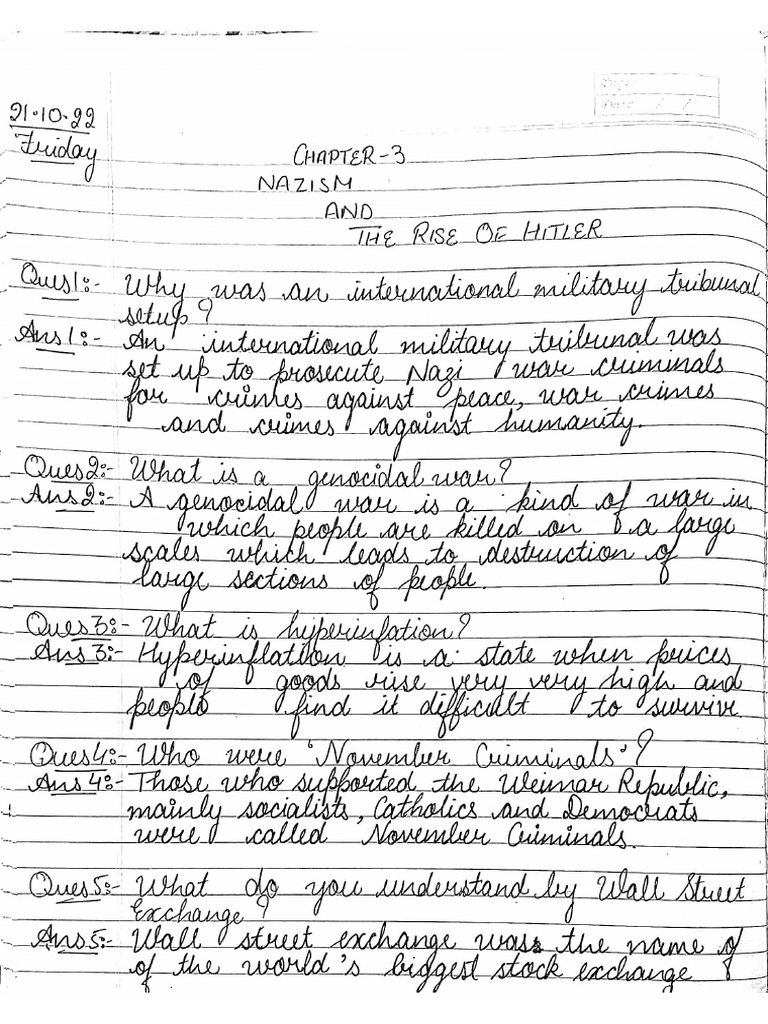 21.10.22
Friday
CHAPTER-3
NAZISM
AND
THE RISE OF HITLER
Ques1:- Why was an international military tribunal
setup?
Ans1:- An international military tribunal was
set up to prosecute Nazi war criminals
for crimes against peace, war crimes
and crimes against humanity.
Ques2:- What is a genocidal war?
Ans2:- A genocidal war is a kind of war in
which people are killed on a large
scales which leads to destruction of
large sections of people.
Ques3:- What is hyperinfation?
Ans3:- Hyperinflation is a state when prices
of goods rise very very high and
people find it difficult to survive
Ques4:- Who were 'November Criminals'?
Ans4:- Those who supported the Weimar Republic,
mainly socialists, Catholics and Democrats
were called November Criminals.
Ques5:- What do you understand by Wall Street
Exchange?
Ans5:- Wall street exchange was the name of
of the world's biggest stock exchange